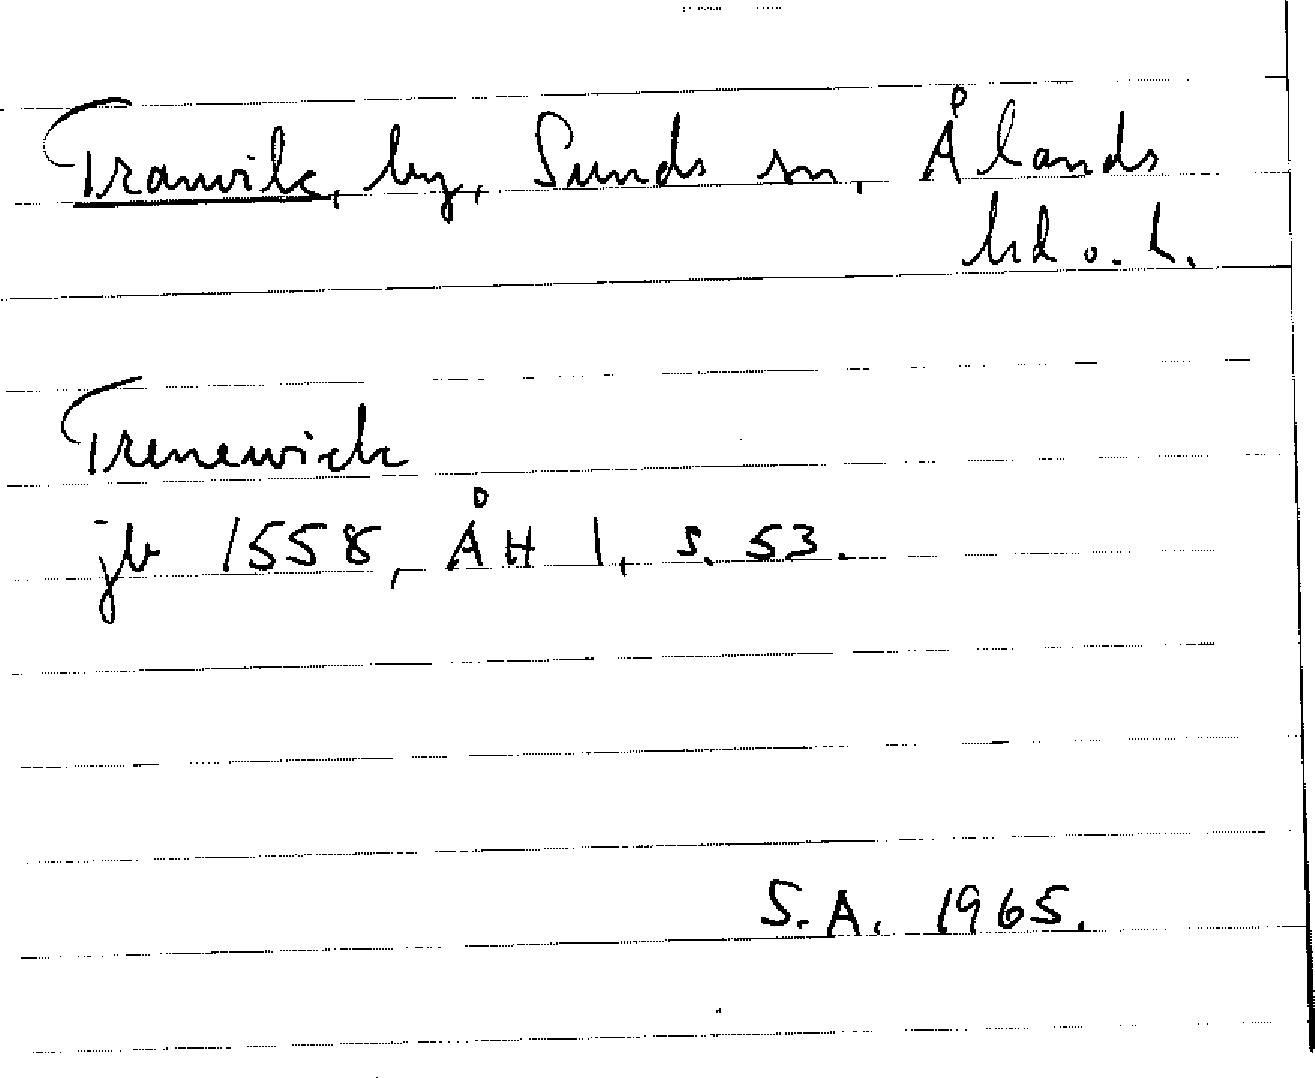 Tranvik, by, Sunds sn, Ålands
hd o. L.
Trenewick
jb 1558, ÅH 1, s. 53.
S.A. 1965.